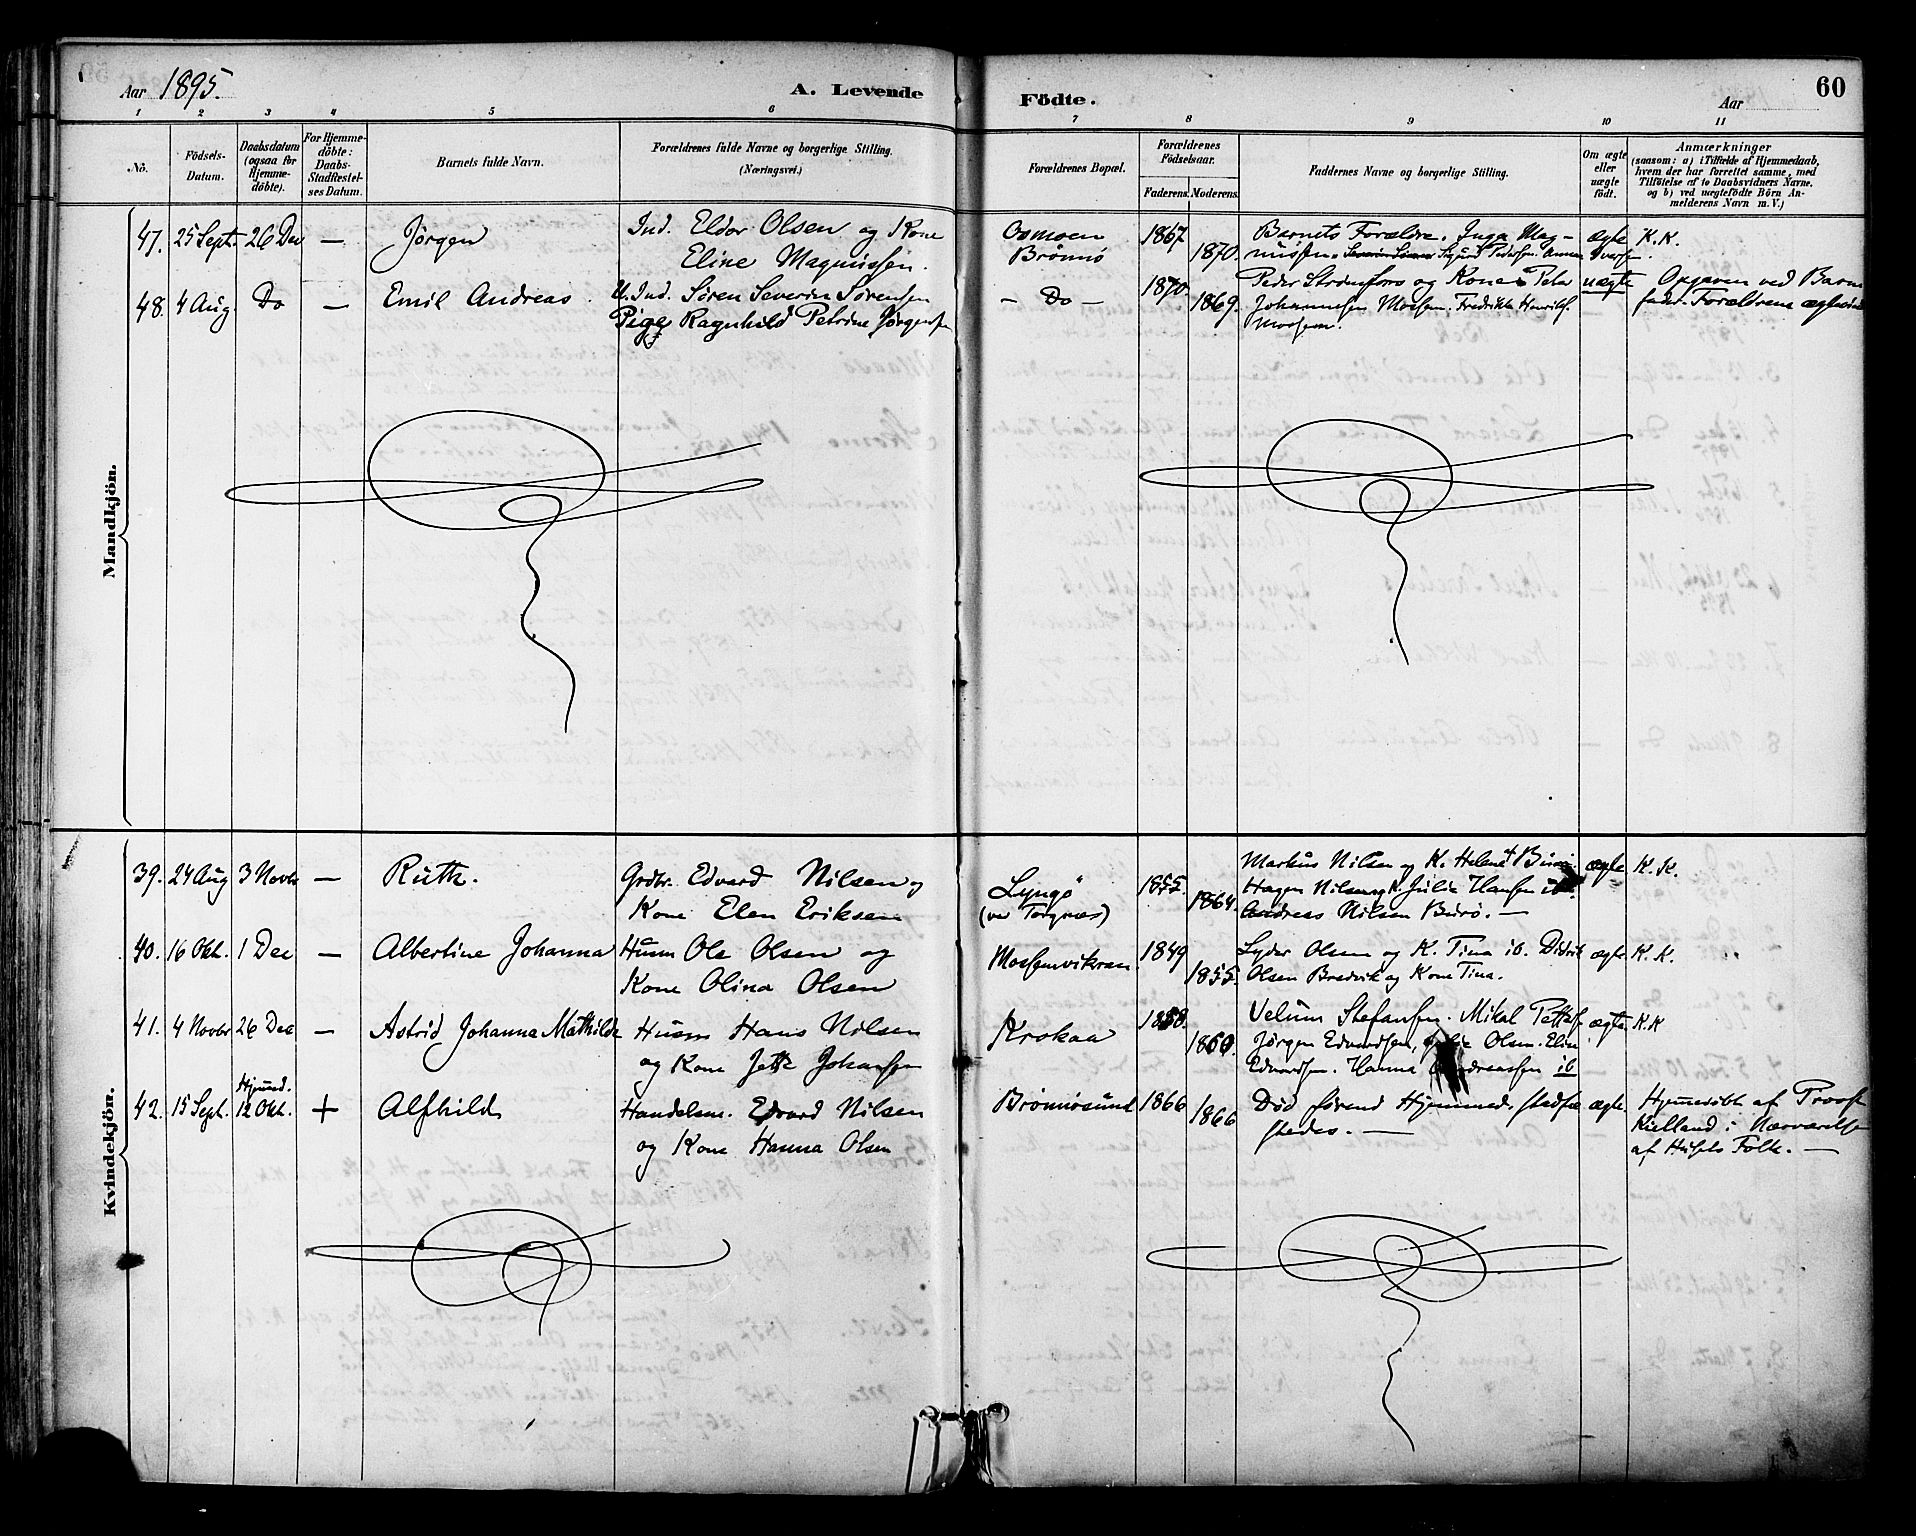 Aar 1895.
A. Levende
Födte.
Aar
60
1 2 3 4 5 6 7 8 9 10 11
No.
Födsels-Datum.
Daabsdatum (ogsaa for Hjemme-döbte).
For Hjemme-döbte: Daabs-Stadfestel-ses Datum.
Barnets fulde Navn.
Forældrenes fulde Navne og borgerlige Stilling.
(Næringsvei.)
Forældrenes Bopæl.
Forældrenes Födselsaar.
Faderens. Moderens.
Faddernes Navne og borgerlige Stilling.
Om ægte eller uægte født.
Anmærkninger
(saasom: a) i Tilfælde af Hjemmedaab,
hvem der har forrettet samme, med
Tilføielse af to Daabsvidners Navne.
og b) ved uægtefödte Börn An-
melderens Navn m. V.)
Mandkjön.
47. 25 Sept. 26 Dec — Jörgen Ind. Eldor Olsen og Kone
Eline Magnussen.
Osmoen
Brönnö
1867
1870.
Barnets Forældre. Inga Mag-
nussen.
ægte
K.K.
48. 4 Aug. Do — Emil Andreas. U. Ind. Sören Severin Sörensen
Pige Ragnhild Petrine Jörgensen
— Do —
1870
1869.
Peder Strömfors og Kone Peter
Johannesen Mossem. Fredrikke Henriks.
Mossem.
uægte
Opgiven ved Barne
fader. Forældrene
Kvindekjön.
39. 24 Aug 3 Novbr — Ruth. Grdbr. Edvard Nilsen og
Kone Elen Eriksen
Lyngö
(ved Torgnæs)
1855.
1864.
Markus Nilsen og K. Helene
Hagen Nilsen og K. Julie Hansen
Andreas Nilsen Burö. —
ægte
K.K.
40. 16 Okt. 1 Dec — Albertine Johanna Husm Ole Olsen og
Kone Olina Olsen
Mosemvikran
1849
1855.
Lyder Olsen og K. Tina ib. Didrik
Olsen Bredvik og Kone Tina.
ægte
K.K.
41. 4 Novbr 26 Dec — Astrid Johanna Mathilde Husm Hans Nilsen
og Kone Jette Johansen
Krokaa
1858.
1860.
Velum Stefansen. Mikal
Jörgen Edvardsen, Olsen. Elin
Edvardsen. Hanna Andreassen ib
ægte
K.K
42. 15 Sept. Hjemmed. 12 Okt. + Alfhild Handelsm. Edvard Nilsen
og Kone Hanna Olsen
Brönnösund
1866
1866
Död förend Hjemmed. stadfæ
stedes. —
ægte.
Hjemmedöbt af Provst
Kielland i Nærværelse
af Husets Folk. —